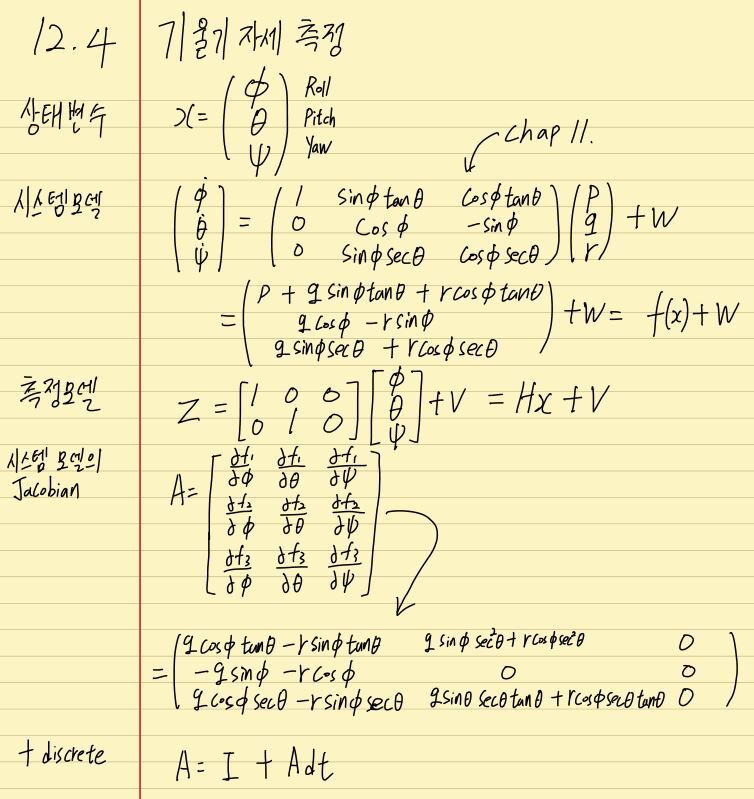 12.4 기울기 자세 측정
상태변수 x = (ϕ θ ψ) Roll Pitch Yaw
chap 11.
시스템모델 (ϕ̇ θ̇ ψ̇) = (1 sinϕtanθ cosϕtanθ
0 cosϕ -sinϕ
0 sinϕsecθ cosϕsecθ) (p q r) + W
= (p + q sinϕtanθ + rcosϕtanθ
q cosϕ - rsinϕ
q sinϕsecθ + rcosϕsecθ) + W = f(x) + W
측정모델 Z = [1 0 0
0 1 0] [ϕ θ ψ] + V = Hx + V
시스템 모델의
Jacobian A = [∂f₁/∂ϕ ∂f₁/∂θ ∂f₁/∂ψ
∂f₂/∂ϕ ∂f₂/∂θ ∂f₂/∂ψ
∂f₃/∂ϕ ∂f₃/∂θ ∂f₃/∂ψ]
= (q cosϕ tanθ - rsinϕtanθ q sinϕ sec²θ + rcosϕsec²θ 0
-q sinϕ - rcosϕ 0 0
q cosϕsecθ - rsinϕsecθ q sinθ secθtanθ + rcosϕsecθtanθ 0)
+ discrete A = I + Adt